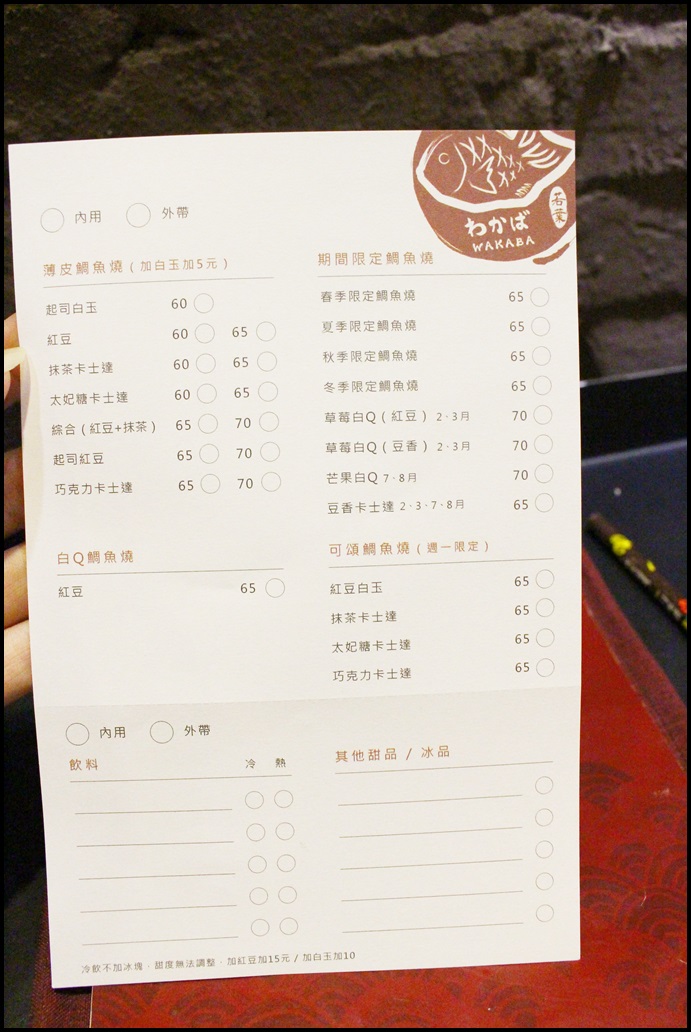 わかば
WAKABA
若葉
內用 外帶
薄皮鯛魚燒 ( 加白玉加5元 )
起司白玉 60
紅豆 60 65
抹茶卡士達 60 65
太妃糖卡士達 60 65
綜合 ( 紅豆+抹茶 ) 65 70
起司紅豆 65 70
巧克力卡士達 65 70
白Q鯛魚燒
紅豆 65
期間限定鯛魚燒
春季限定鯛魚燒 65
夏季限定鯛魚燒 65
秋季限定鯛魚燒 65
冬季限定鯛魚燒 65
草莓白Q ( 紅豆 ) 2、3月 70
草莓白Q ( 豆香 ) 2、3月 70
芒果白Q 7、8月 70
豆香卡士達 2、3、7、8月 65
可頌鯛魚燒 ( 週一限定 )
紅豆白玉 65
抹茶卡士達 65
太妃糖卡士達 65
巧克力卡士達 65
內用 外帶
飲料 冷 熱
其他甜品 / 冰品
冷飲不加冰塊、甜度無法調整、加紅豆加15元 / 加白玉加10